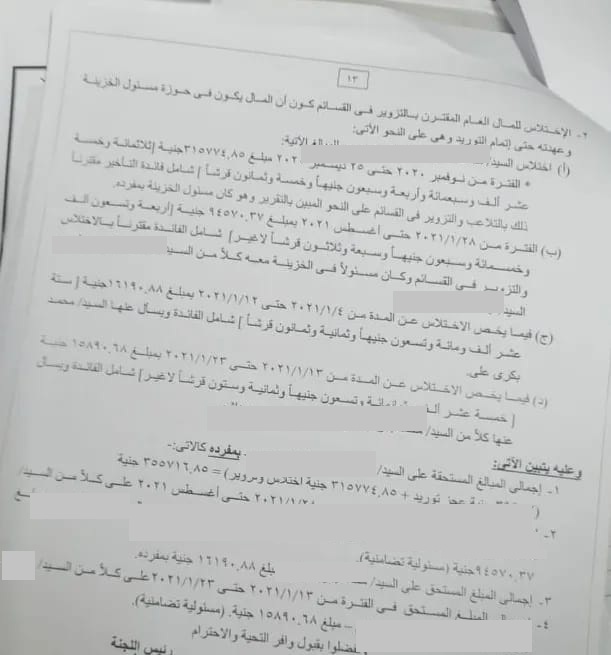 ١٣
٢. الإختلاس للمال العام المقترن بالتزوير فى القسائم كون أن المال يكون فى حوزة مسئول الخزينة
وعهدته حتى إتمام التوريد وهى على النحو الأتى:
(أ) اختلاس السيد/ المبالغ الأتية:
* الفترة من نوفمبر ٢٠٢٠ حتى ٢٥ ديسمبر ٢٠٢٠ مبلغ ٣١٥٧٧٤,٨٥ جنية [ثلاثمائة وخمسة
عشر ألف وسبعمائة وأربعة وسبعون جنيهاً وخمسة وثمانون قرشاً] شامل فائدة التأخير مقترنا
ذلك بالتلاعب والتزوير فى القسائم على النحو المبين بالتقرير وهو كان مسئول الخزينة بمفرده.
(ب) الفترة من ٢٠٢١/١/٢٨ حتى أغسطس ٢٠٢١ بمبلغ ٩٤٥٧٠,٣٧ جنية [أربعة وتسعون ألف
وخمسمائة وسبعون جنيهاً وسبعة وثلاثون قرشاً لاغير] شامل الفائدة مقترناً بالاختلاس
والتزوير فى القسائم وكان مسئولاً فى الخزينة معه كلاً من السيد/
السيد/
(ج) فيما يخص الاختلاس عن المدة من ٢٠٢١/١/٤ حتى ٢٠٢١/١/١٢ بمبلغ ١٦١٩٠,٨٨ جنية [ستة
عشر ألف ومائة وتسعون جنيهاً وثمانية وثمانون قرشاً] شامل الفائدة ويسأل عنها السيد/ محمد
بكرى على.
(د) فيما يخص الاختلاس عن المدة من ٢٠٢١/١/١٣ حتى ٢٠٢١/١/٢٣ بمبلغ ١٥٨٩٠,٦٨ جنية
[خمسة عشر ألف وثمانمائة وتسعون جنيهاً وثمانية وستون قرشاً لاغير] شامل الفائدة ويسأل
عنها كلاً من السيد/
وعليه يتبين الأتى:
١- إجمالى المبالغ المستحقة على السيد/ بمفرده كالاتى:-
عجز توريد + ٣١٥٧٧٤,٨٥ جنية اختلاس وتزوير) = ٣٥٥٧١٦,٨٥ جنية
٢- حتى أغسطس ٢٠٢١ على كلاً من السيد/
٩٤٥٧٠,٣٧ جنية (مسئولية تضامنية).
٣- إجمالى المبلغ المستحق على السيد/ بمبلغ ١٦١٩٠,٨٨ جنية بمفرده.
٤- المبلغ المستحق فى الفترة من ٢٠٢١/١/١٣ حتى ٢٠٢١/١/٢٣ على كلاً من السيد/
مبلغ ١٥٨٩٠,٦٨ جنية. (مسئولية تضامنية).
وتفضلوا بقبول وافر التحية والاحترام
رئيس اللجنة